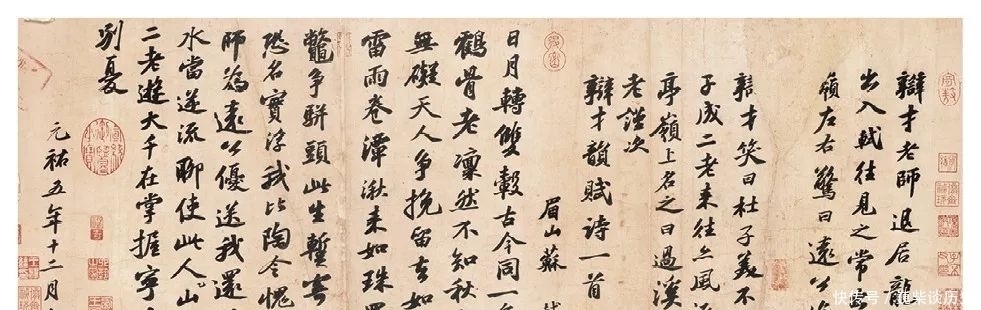 辯才老師退居龍
出入軾往見之常
嶺左右驚曰遠公
辯才笑曰杜子美不
子成二老来往亦風
亭嶺上名之曰過溪
老謹次
辯才韻賦詩一首
眉山蘇
日月轉雙轂古今同一
鶴骨老凜然不知秋
無礙天人争挽留去如
雷雨卷潭湫来如珠
鼈争駢頭此生暫寄
恐名實浮我比陶令愧
師為遠公優送我還
水當逆流聊使此人山
二老遊大千在掌握寧
別憂
元祐五年十二月
快传号 / 柴谈历